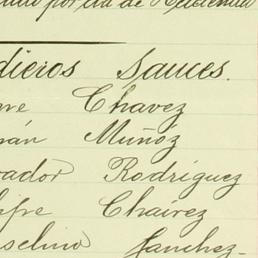 por
de
dieros Sauces.
re Chavez
án Muñoz
ador Rodríguez
ipe Cháirez
selino Sanchez-